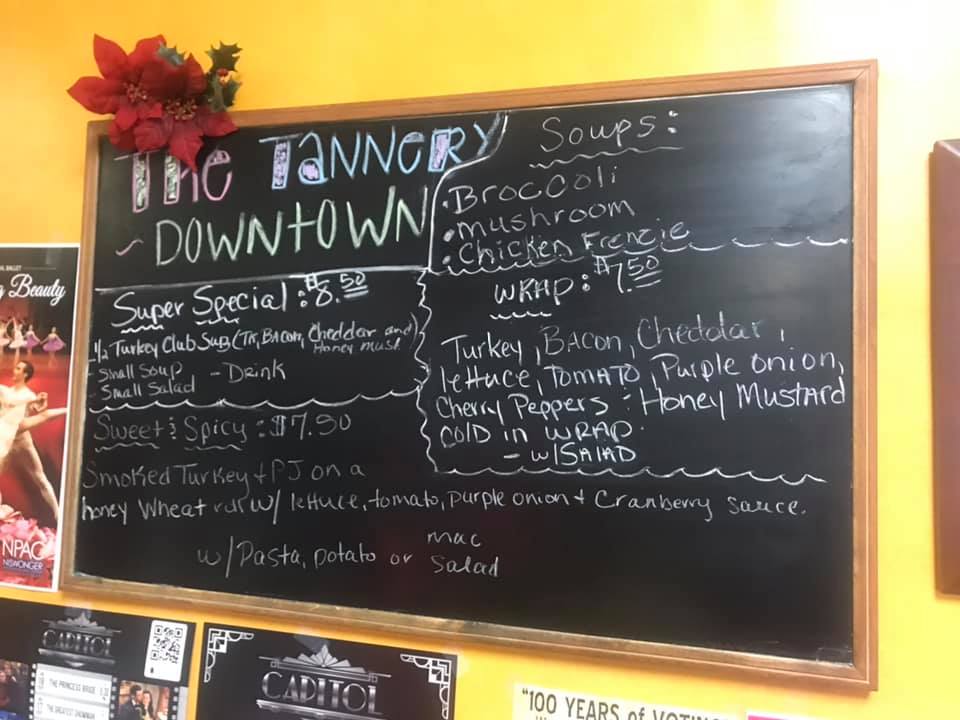 The Tannery
~ Downtown
Super Special: $8.50
1/2 Turkey Club Sug (TK, Bacon, Cheddar and
Honey Must.
- Small Soup
- Small Salad
- Drink
Sweet & Spicy: $7.50
Smoked Turkey + PJ on a
honey Wheat w/ lettuce, tomato, purple onion + Cranberry sauce.
w/ Pasta, potato or mac
Salad
Soups:
• Broccoli
• mushroom
• Chicken Frenzie
Wrap: $7.50
Turkey, Bacon, Cheddar,
lettuce, Tomato, Purple onion,
Cherry Peppers : Honey Mustard
Cold in Wrap
- w/Salad
BALLET
g Beauty
NPAC
NISWONGER
CAPITOL
THE PRINCESS BRIDE
THE GREATEST SHOWMAN
CAPITOL
"100 YEARS of VOTING